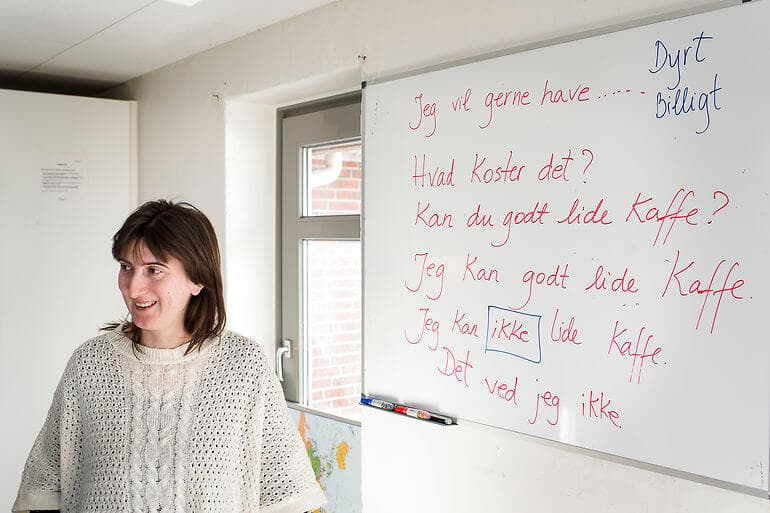 Dyrt
Billigt
Jeg vil gerne have ......
Hvad koster det?
Kan du godt lide Kaffe?
Jeg Kan godt lide Kaffe.
Jeg Kan ikke lide Kaffe.
Det ved jeg ikke.